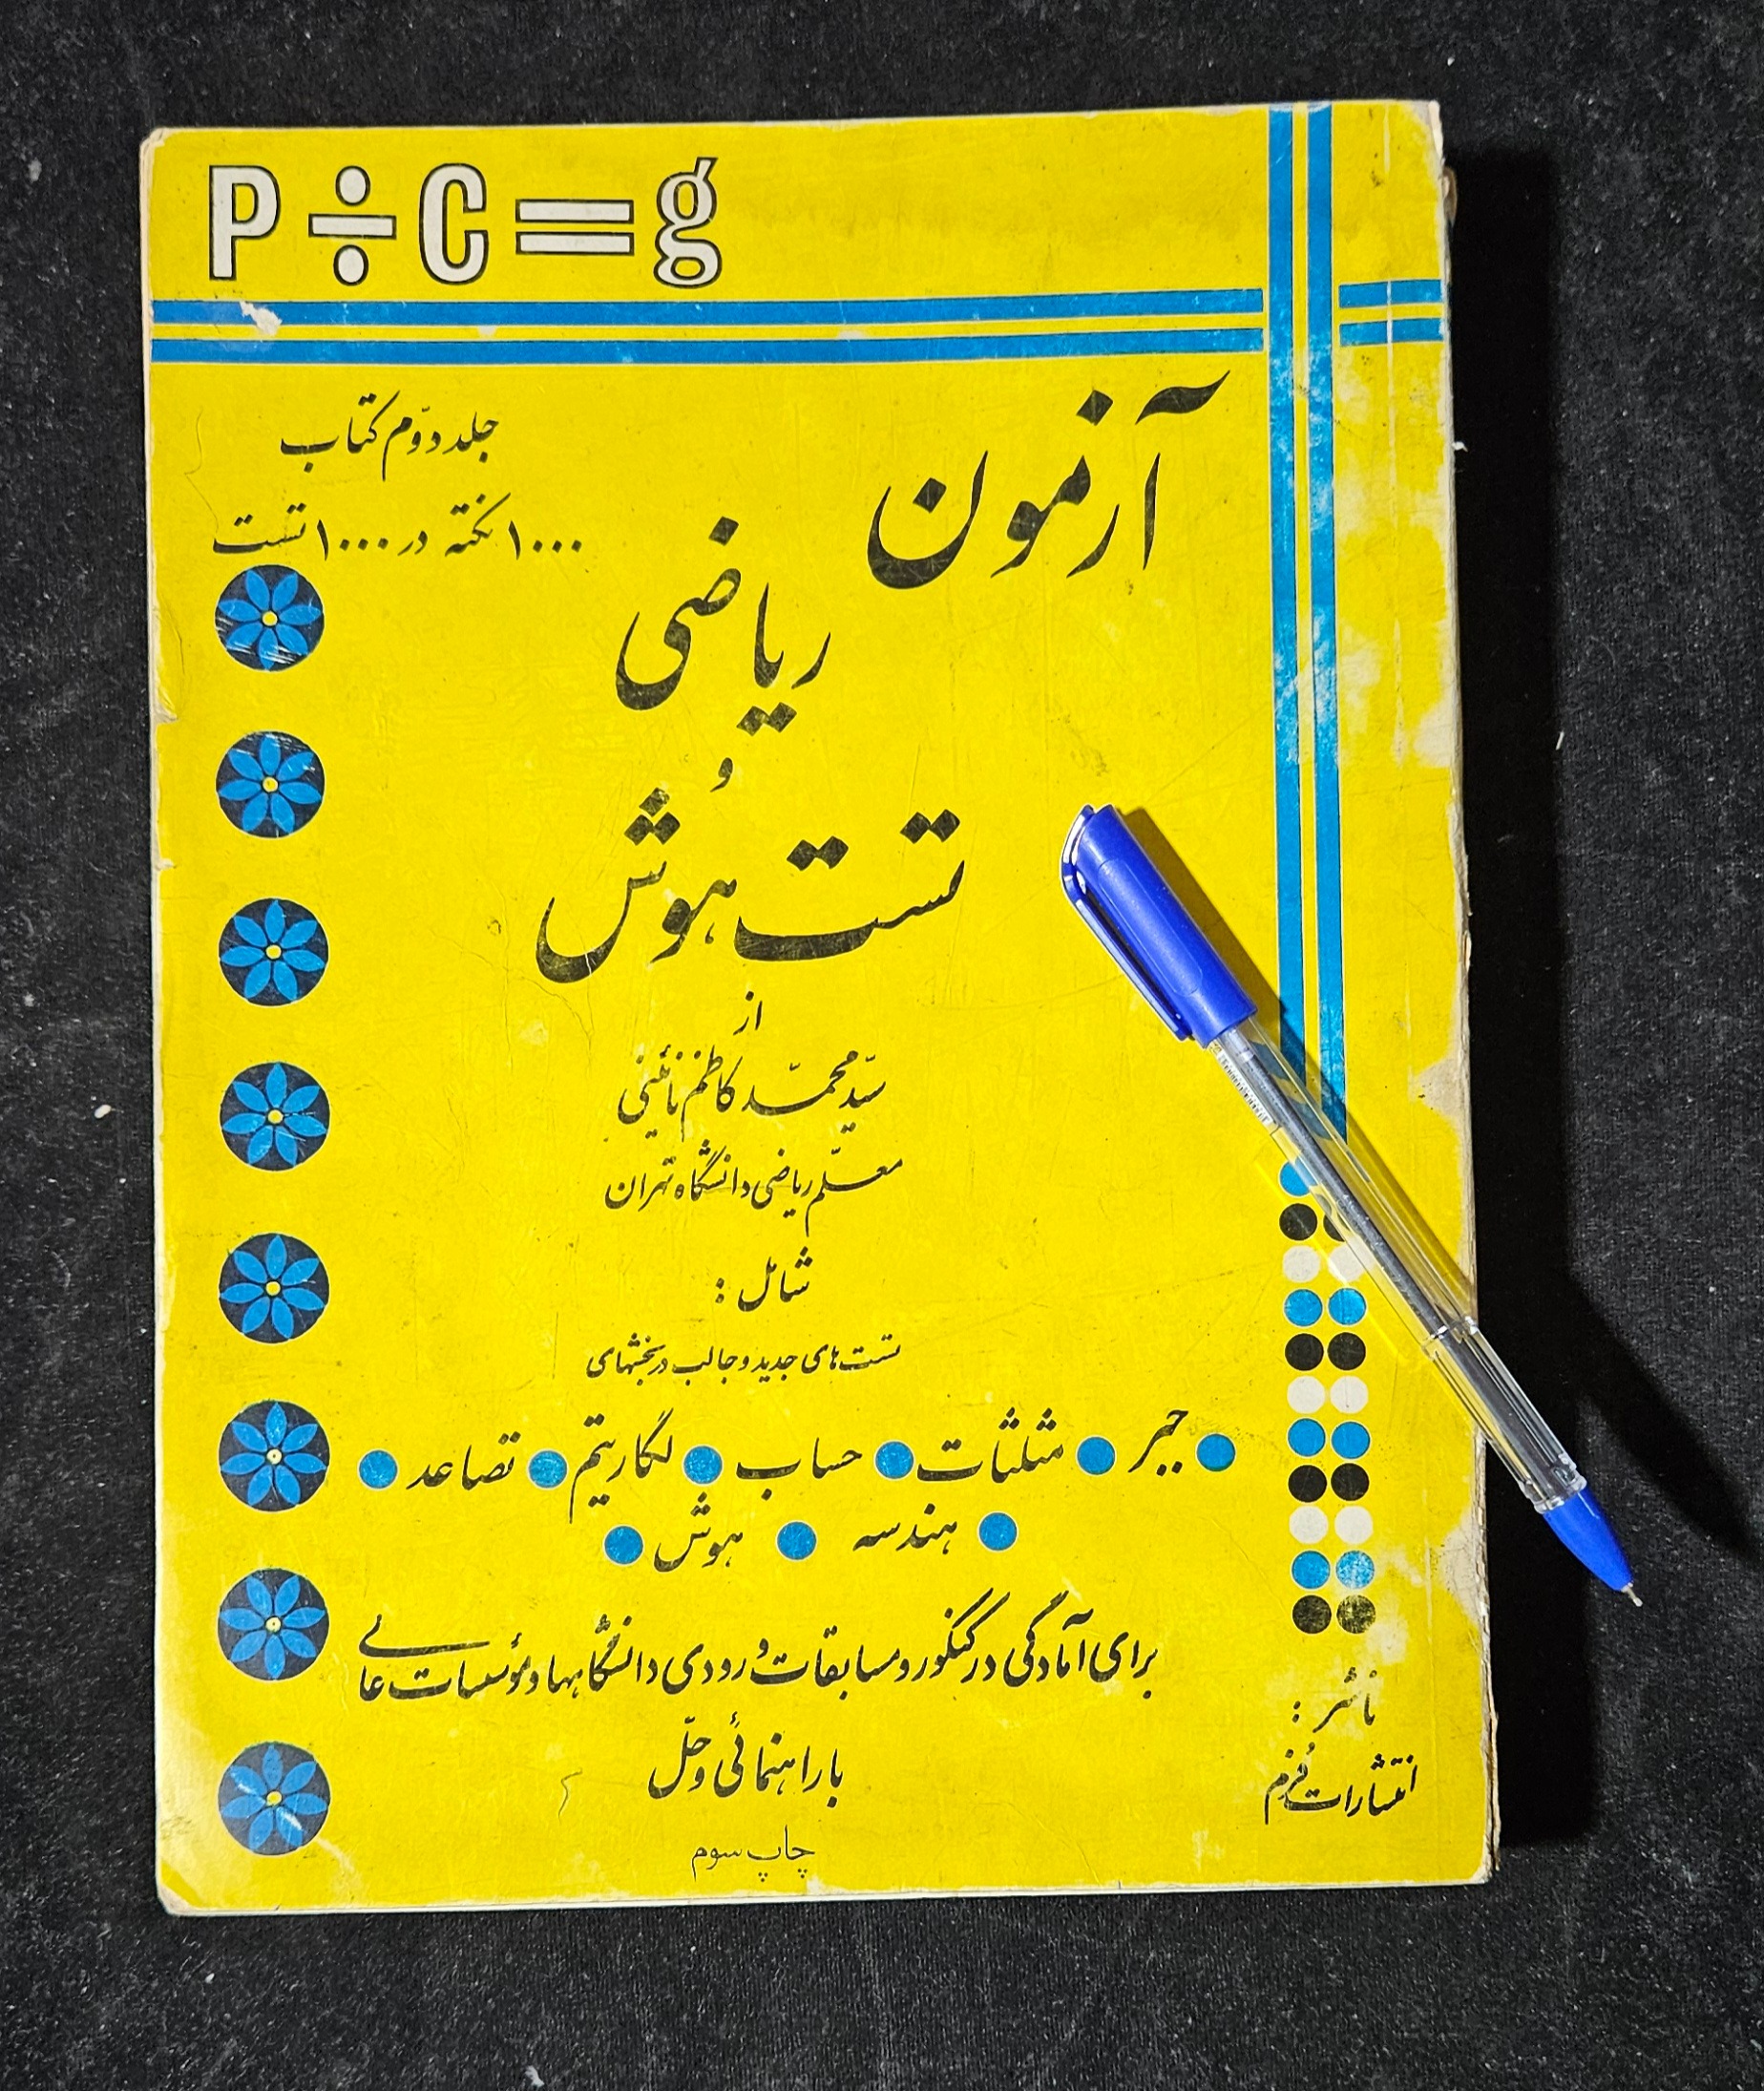 P÷C=g
جلد دوّم کتاب
۱۰۰۰ نکته در ۱۰۰۰ تست
آزمون
ریاضی
و
تست هوش
از
سیّد محمّد کاظم نائینی
معلّم ریاضی دانشگاه تهران
شامل :
تست های جدید و جالب در بخشهای
جبر ● مثلثات ● حساب ● لگاریتم ● تصاعد
هندسه ● هوش
برای آمادگی در کنکور و مسابقات ورودی دانشگاهها و مؤسسات عالی
با راهنمائی و حلّ
چاپ سوم
ناشر :
انتشارات فُرم